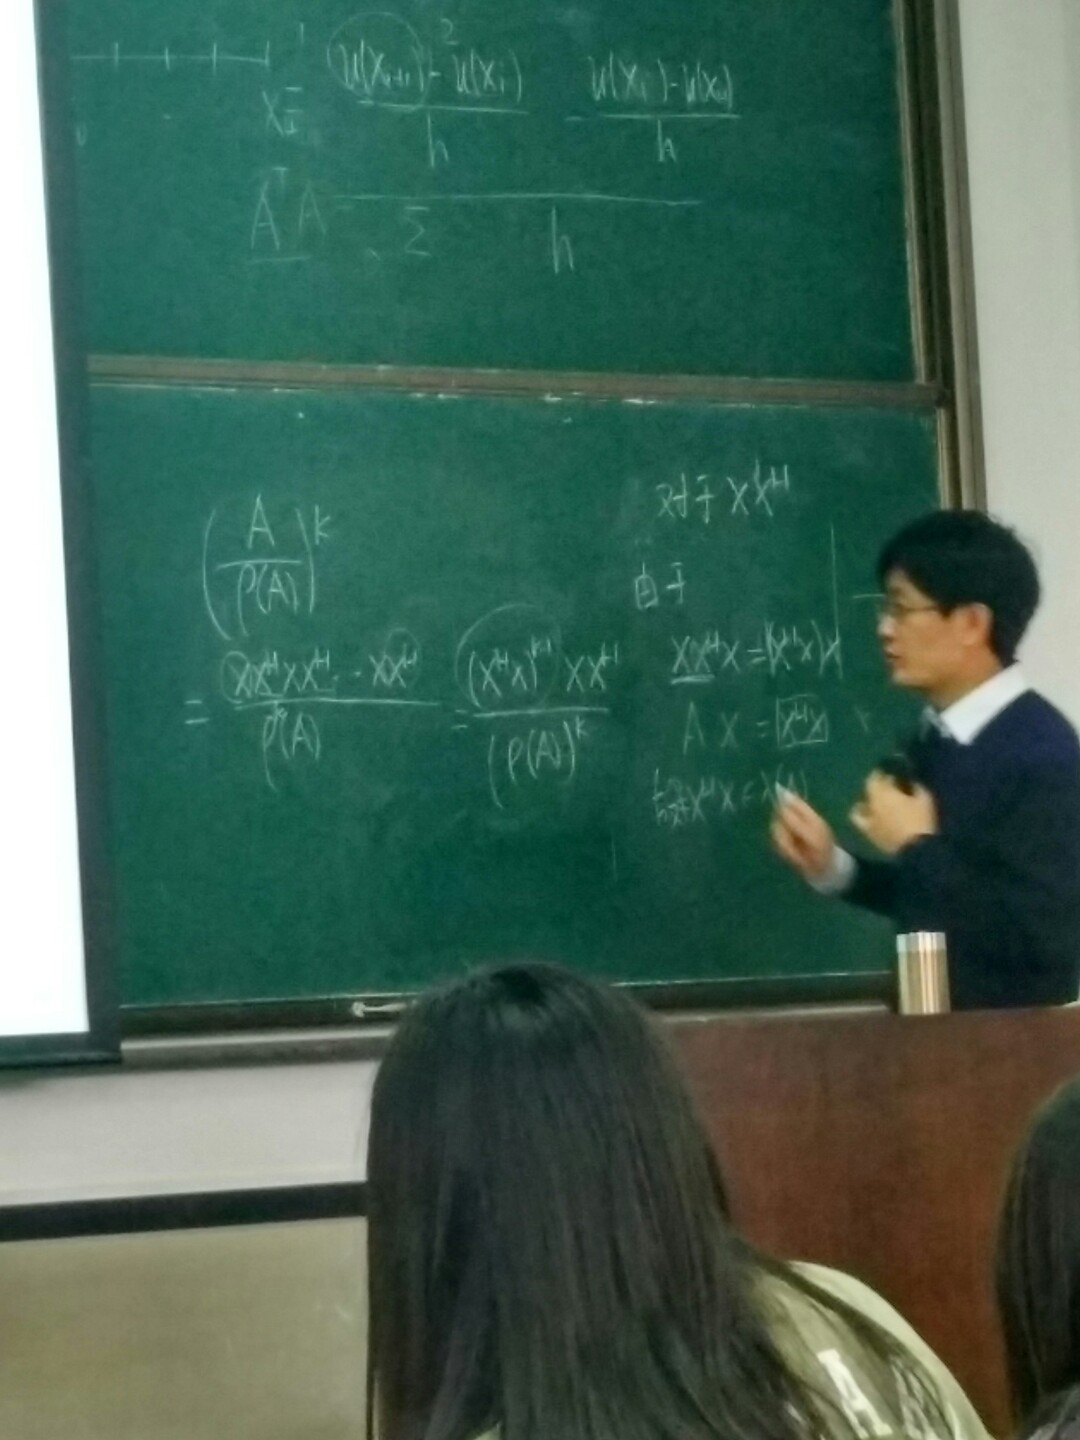 1 2
x_i = \frac{u(x_{i+1}) - u(x_i)}{h} - \frac{u(x_i) - u(x_{i-1})}{h}
A^T A
Σ h
\left(\frac{A}{ρ(A)}\right)^k
= \frac{xx^H xx^H \cdots xx^H}{ρ^k(A)} = \frac{(x^H x)^{k-1} xx^H}{(ρ(A))^k}
对于 xx^H
由于
xx^H x = (x^H x) x
A x = x^H x x
x^H x ∈ λ(A)
A